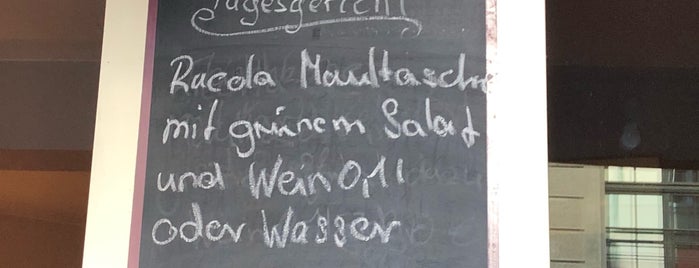 Tagesgericht
Rucola Maultasche
mit grünem Salat
und Wein 0,1l
oder Wasser